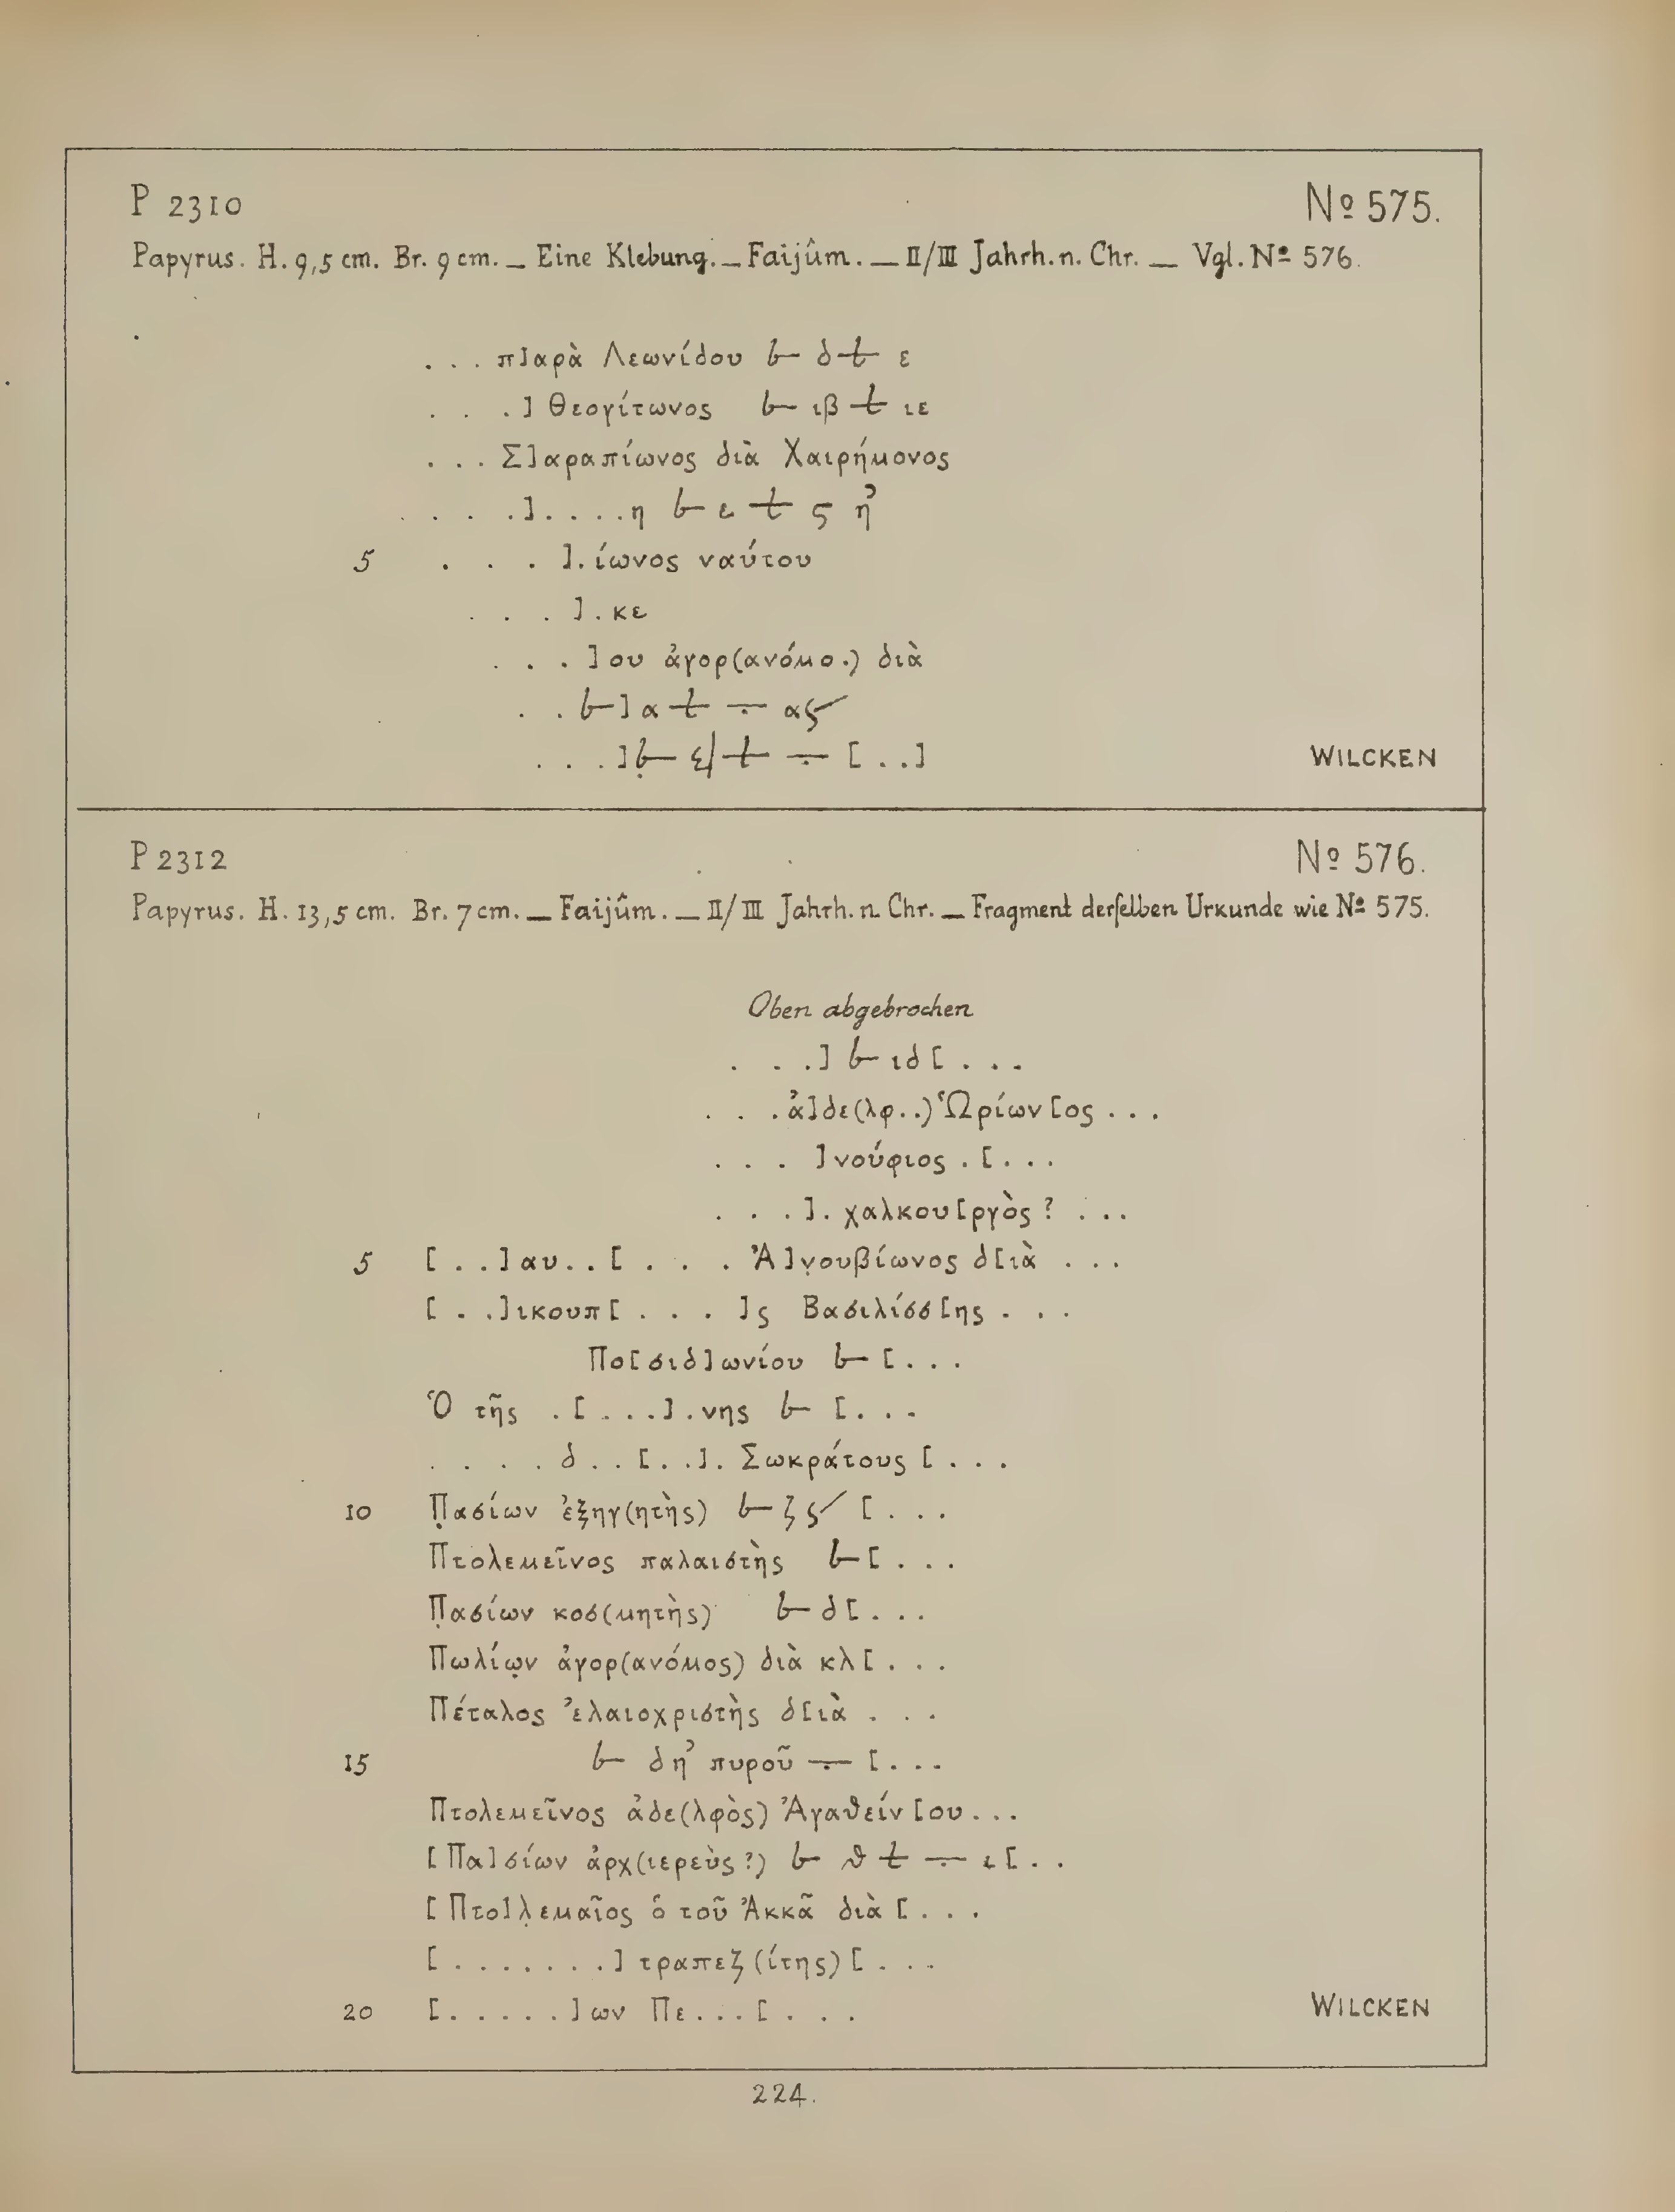 P 2310 № 575.
Papyrus. H. 9,5 cm. Br. 9 cm. _ Eine Klebung. _ Faijûm. _ II/III Jahrh. n. Chr. _ Vgl. № 576.
. . . π]αρὰ Λεωνίδου 𐅾 δ ⳨ ε
. . . ] Θεογίτωνος 𐅾 ιβ ⳨ ιε
. . . Σ]αραπίωνος διὰ Χαιρήμονος
. . . ] . . . . η 𐅾 ε ⳨ ϛ η᾽
5 . . . ] . ίωνος ναύτου
. . . ] . κε
. . . ]ου ἀγορ(ανόμο.) διὰ
. . 𐅾] α ⳨ ∸ αϛ
. . . ]𐅾 ε ⳨ ∸ [ . . ]
WILCKEN
P 2312 № 576.
Papyrus. H. 13,5 cm. Br. 7 cm. _ Faijûm. _ II/III Jahrh. n. Chr. _ Fragment derſelben Urkunde wie № 575.
Oben abgebrochen
. . . ] 𐅾 ιδ [ . . .
. . . ἀ]δε(λφ..) Ὡρίων[ος . . .
. . . ]νούφιος . [ . . .
. . . ] . χαλκου[ργὸς ? . . .
5 [ . . ]αυ . . [ . . . Ἀ]ν̣ουβίωνος δ[ιὰ . . .
[ . . ]ικουπ[ . . . ]ς Βασιλίσσ[ης . . .
Πο[σιδ]ωνίου 𐅾 [ . . .
Ὁ τῆς . [ . . . ] . νης 𐅾 [ . . .
. . . . δ . . [ . . ] . Σωκράτους [ . . .
10 Π̣ασίων ἐξηγ(ητὴς) 𐅾 ζϛ [ . . .
Πτολεμεῖνος παλαιστὴς 𐅾 [ . . .
Π̣ασίων κοσ(μητὴς) 𐅾 δ [ . . .
Πωλίω̣ν ἀγορ(ανόμος) διὰ κλ[ . . .
Πέταλος ἐλαιοχριστὴς δ[ιὰ . . .
15 𐅾 δη᾽ πυροῦ ∸ [ . . .
Πτολεμεῖνος ἀδε(λφὸς) Ἀγαθείν[ου . . .
[Πα]σίων ἀρχ(ιερεὺς ?) 𐅾 θ ⳨ ∸ ι [ . .
[Πτο]λ̣εμαῖος ὁ τοῦ Ἀκκᾶ διὰ [ . . .
[ . . . . . . . ] τραπεζ(ίτης) [ . . .
20 [ . . . . . . ]ων Πε . . . [ . . .
WILCKEN
224.